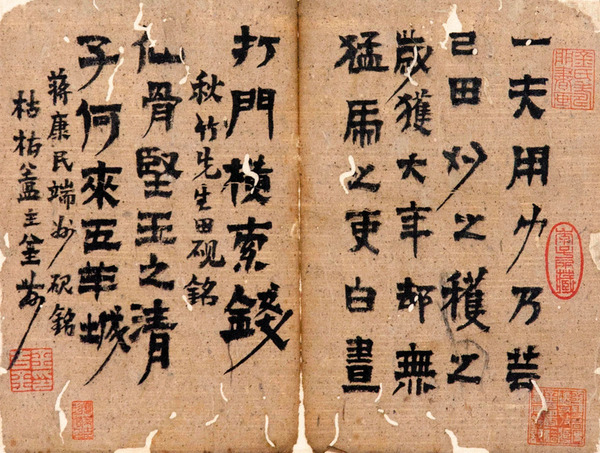 一夫用力乃芸
己田刈之穫之
歲獲大年却無
猛虎之吏白晝
打門橫索錢
秋竹先生田硯銘
仙骨堅玉之清
子何來五羊城
蔣康民端州硯銘
枯梅盦主金農